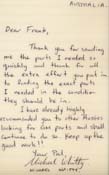 AUSTRALIA.
Dear Frank,
Thank you for sending
me the parts I needed so
quickly and thanks for all
the extra effort you put in
to finding the exact parts
I needed in the condition
they should be in.
I have already highly
recommended you to other Aussies
looking for Ciao parts and shall
continue to do so. Keep up the
good work!!
Your Pal,
Michael